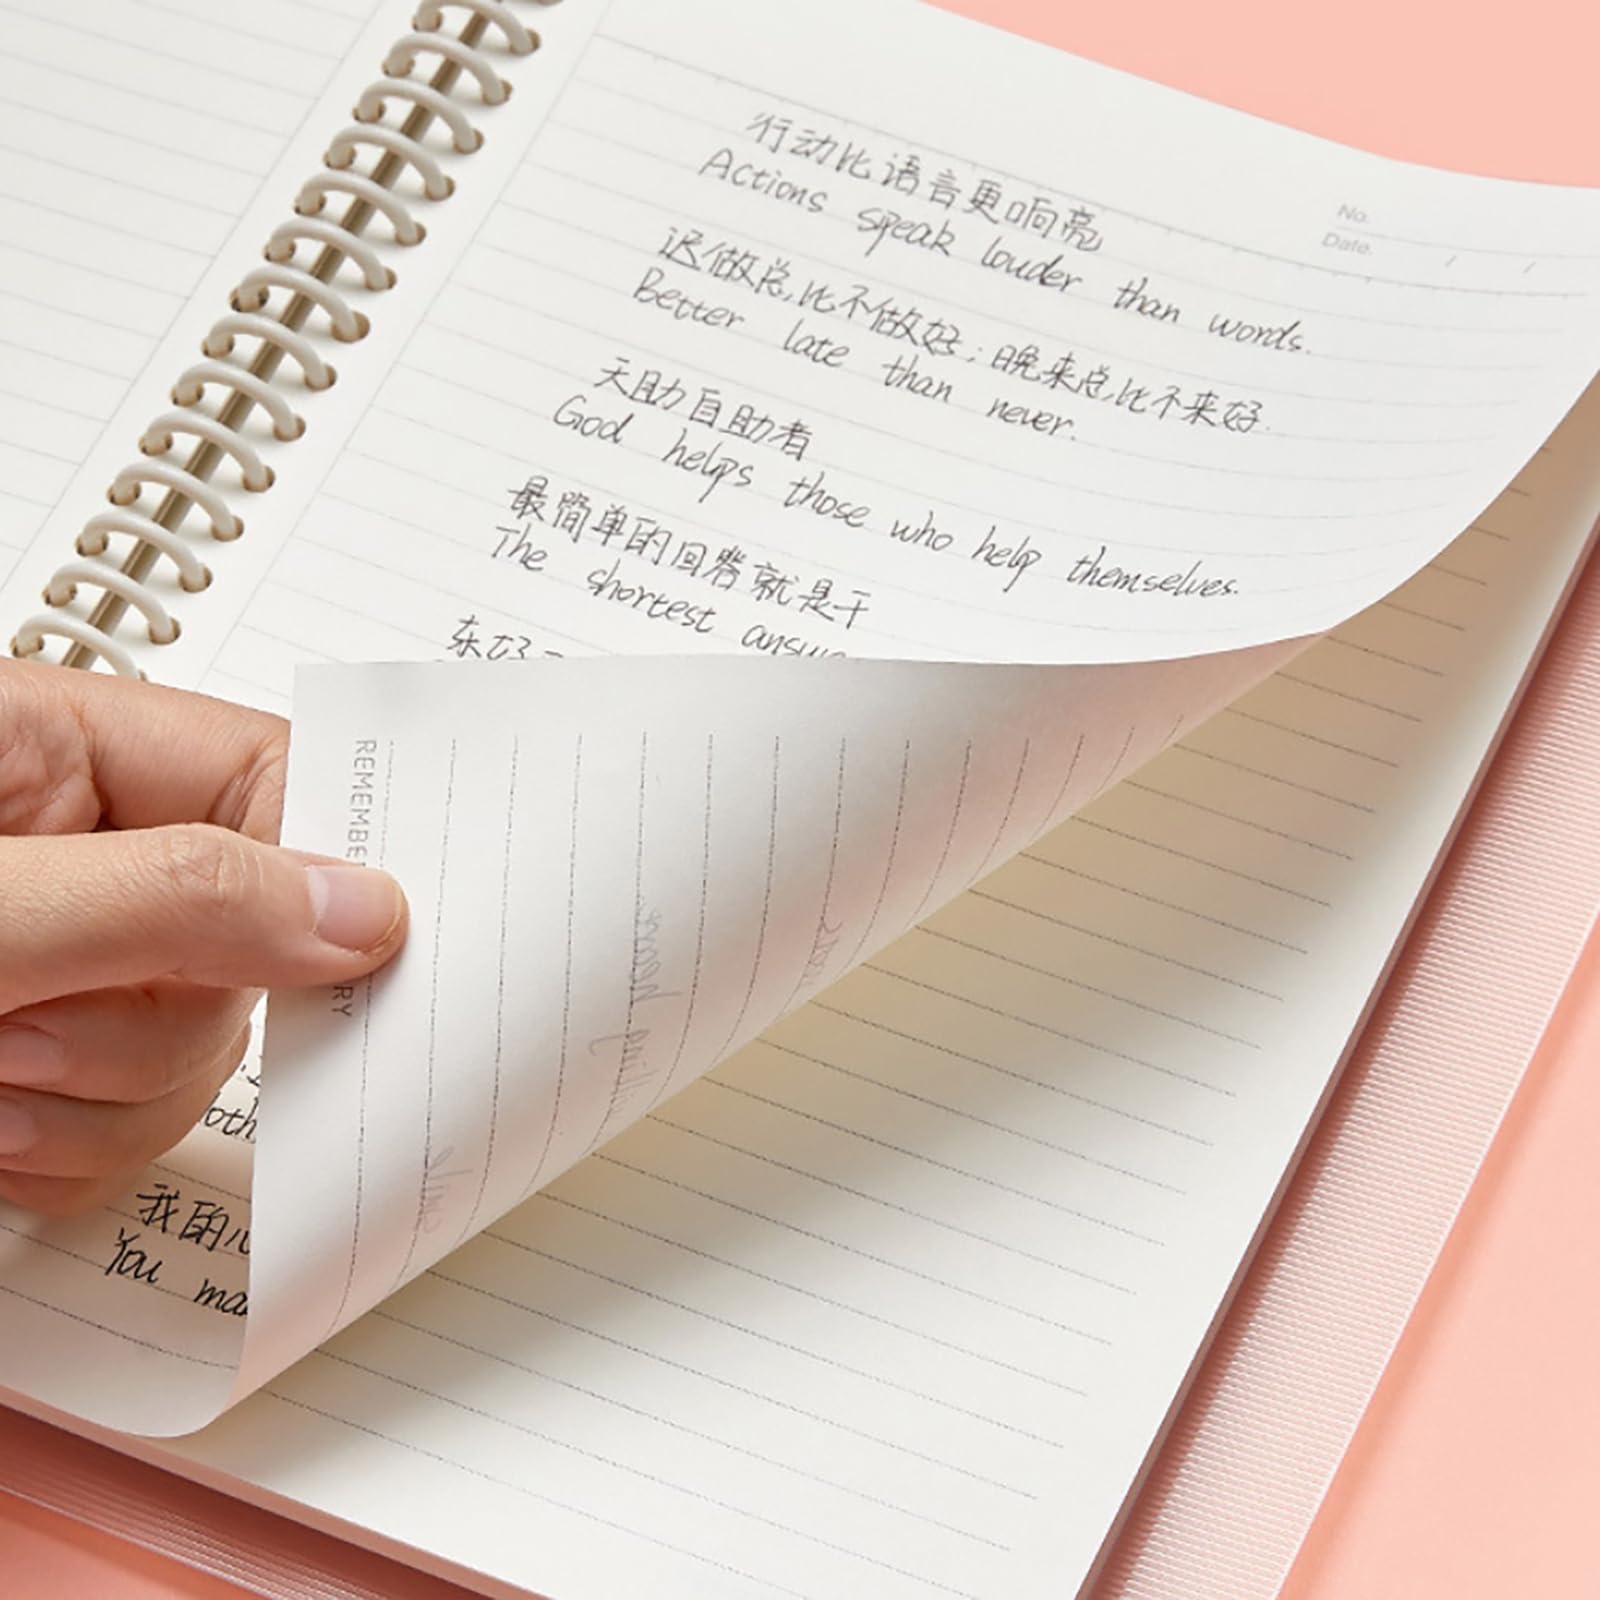 No.
Date. / /
行动比语言更响亮
Actions speak louder than words.
迟做总比不做好;晚来总比不来好.
Better late than never.
天助自助者
God helps those who help themselves.
最简单的回答就是干
The shortest
东好
我的
You